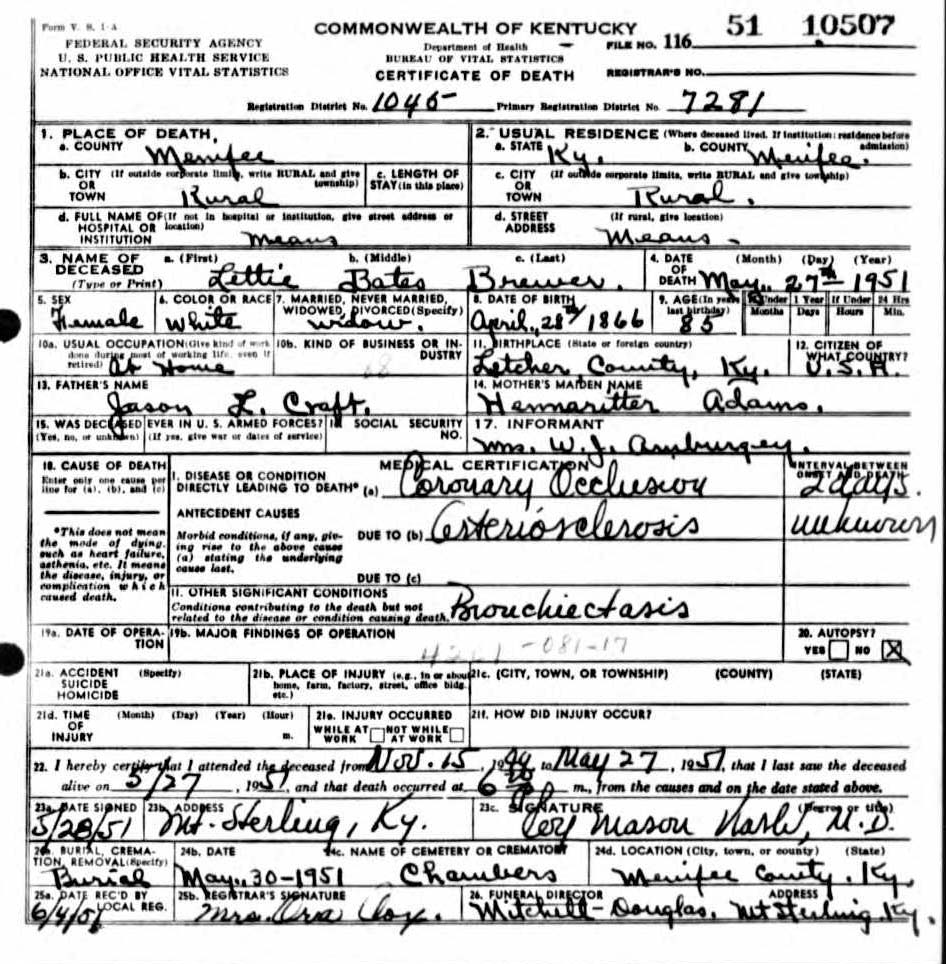 Form V. S. 1-A
COMMONWEALTH OF KENTUCKY
51 10507
FEDERAL SECURITY AGENCY
U. S. PUBLIC HEALTH SERVICE
NATIONAL OFFICE VITAL STATISTICS
Department of Health
BUREAU OF VITAL STATISTICS
CERTIFICATE OF DEATH
FILE NO. 116
REGISTRAR'S NO.
Registration District No. 1045 Primary Registration District No. 7281
1. PLACE OF DEATH
a. COUNTY Menifee
2. USUAL RESIDENCE (Where deceased lived. If institution: residence before admission)
a. STATE Ky. b. COUNTY Menifee.
b. CITY (If outside corporate limits, write RURAL and give township)
OR
TOWN Rural
c. LENGTH OF
STAY (in this place)
c. CITY (If outside corporate limits, write RURAL and give township)
OR
TOWN Rural.
d. FULL NAME OF (If not in hospital or institution, give street address or location)
HOSPITAL OR
INSTITUTION Means
d. STREET (If rural, give location)
ADDRESS Means
3. NAME OF DECEASED
(Type or Print)
a. (First) b. (Middle) c. (Last)
Lettie Bates Brewer
4. DATE OF DEATH (Month) (Day) (Year)
May, 27th 1951
5. SEX
Female
6. COLOR OR RACE
White
7. MARRIED, NEVER MARRIED, WIDOWED, DIVORCED (Specify)
Widow.
8. DATE OF BIRTH
April, 28th 1866
9. AGE (In years last birthday)
85
If Under 1 Year
Months Days
If Under 24 Hrs
Hours Min.
10a. USUAL OCCUPATION (Give kind of work done during most of working life, even if retired)
At Home
10b. KIND OF BUSINESS OR INDUSTRY
11. BIRTHPLACE (State or foreign country)
Letcher County, Ky.
12. CITIZEN OF WHAT COUNTRY?
U.S.A.
13. FATHER'S NAME
Jason L. Craft.
14. MOTHER'S MAIDEN NAME
Hennaritter Adams.
15. WAS DECEASED EVER IN U. S. ARMED FORCES?
(Yes, no, or unknown) (If yes, give war or dates of service)
16. SOCIAL SECURITY NO.
17. INFORMANT
Mrs. W. J. Amburgey.
18. CAUSE OF DEATH
Enter only one cause per line for (a), (b), and (c)
MEDICAL CERTIFICATION
INTERVAL BETWEEN ONSET AND DEATH
I. DISEASE OR CONDITION
DIRECTLY LEADING TO DEATH* (a) Coronary Occlusion 2 days.
*This does not mean the mode of dying, such as heart failure, asthenia, etc. It means the disease, injury, or complication which caused death.
ANTECEDENT CAUSES
Morbid conditions, if any, giving rise to the above cause (a) stating the underlying cause last.
DUE TO (b) Arteriosclerosis unknown
DUE TO (c)
II. OTHER SIGNIFICANT CONDITIONS
Conditions contributing to the death but not related to the disease or condition causing death.
Bronchiectasis
19a. DATE OF OPERATION
19b. MAJOR FINDINGS OF OPERATION
20. AUTOPSY?
YES NO X
21a. ACCIDENT (Specify)
SUICIDE
HOMICIDE
21b. PLACE OF INJURY (e.g., in or about home, farm, factory, street, office bldg. etc.)
21c. (CITY, TOWN, OR TOWNSHIP) (COUNTY) (STATE)
21d. TIME OF INJURY (Month) (Day) (Year) (Hour)
m.
21e. INJURY OCCURRED
WHILE AT WORK NOT WHILE AT WORK
21f. HOW DID INJURY OCCUR?
22. I hereby certify that I attended the deceased from Nov. 15, 19 to May 27, 1951, that I last saw the deceased
alive on 5/27, 1951, and that death occurred at m., from the causes and on the date stated above.
23a. DATE SIGNED
5/28/51
23b. ADDRESS
Mt. Sterling, Ky.
23c. SIGNATURE (Degree or title)
Mason M.D.
24a. BURIAL, CREMATION, REMOVAL (Specify)
Burial
24b. DATE
May, 30-1951
24c. NAME OF CEMETERY OR CREMATORY
Chambers
24d. LOCATION (City, town, or county) (State)
Menifee County, Ky.
25a. DATE REC'D BY LOCAL REG.
6/4/51
25b. REGISTRAR'S SIGNATURE
Mrs. Ora
26. FUNERAL DIRECTOR ADDRESS
Mitchell-Douglas, Mt Sterling, Ky.